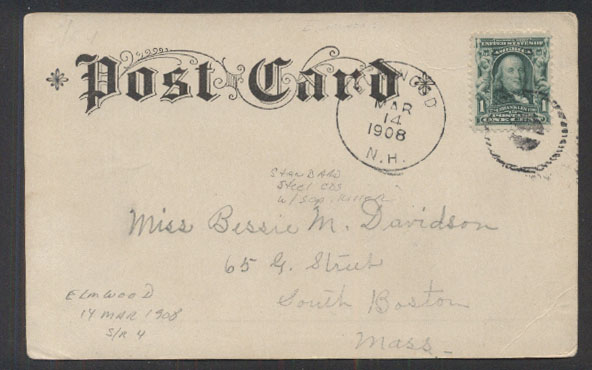 Post Card
MAR
14
1908
N.H.
UNITED STATES OF
1 1
FRANKLIN
ONE CENT
STANDARD
STEEL CDS
w/ SEP. KILLER
Miss Bessie M. Davidson
65 G. Street
South Boston
Mass.
ELMWOOD
14 MAR 1908
S/R 4